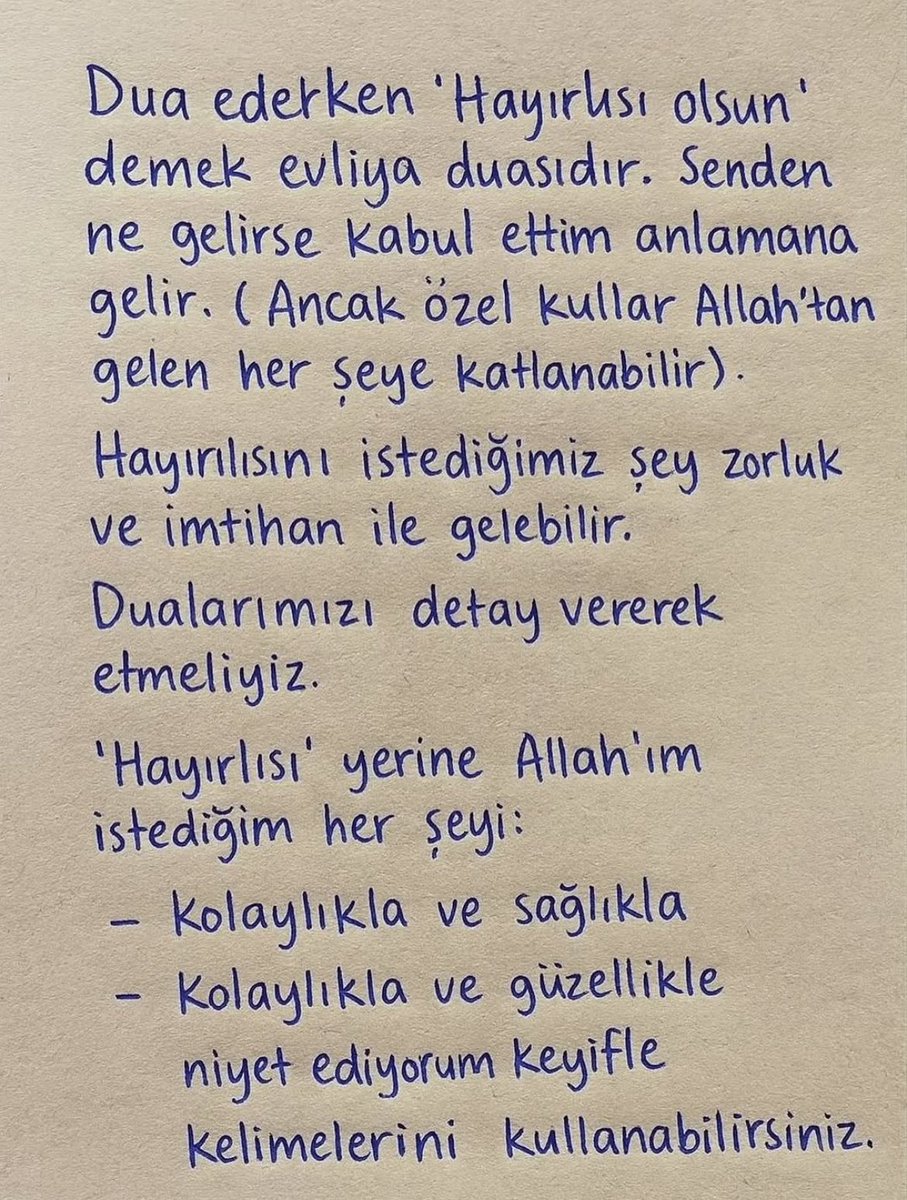 Dua ederken 'Hayırlısı olsun'
demek evliya duasıdır. Senden
ne gelirse kabul ettim anlamana
gelir. (Ancak özel kullar Allah'tan
gelen her şeye katlanabilir).
Hayırılısını istediğimiz şey zorluk
ve imtihan ile gelebilir.
Dualarımızı detay vererek
etmeliyiz.
'Hayırlısı' yerine Allah'ım
istediğim her şeyi:
- Kolaylıkla ve sağlıkla
- Kolaylıkla ve güzellikle
niyet ediyorum keyifle
kelimelerini kullanabilirsiniz.